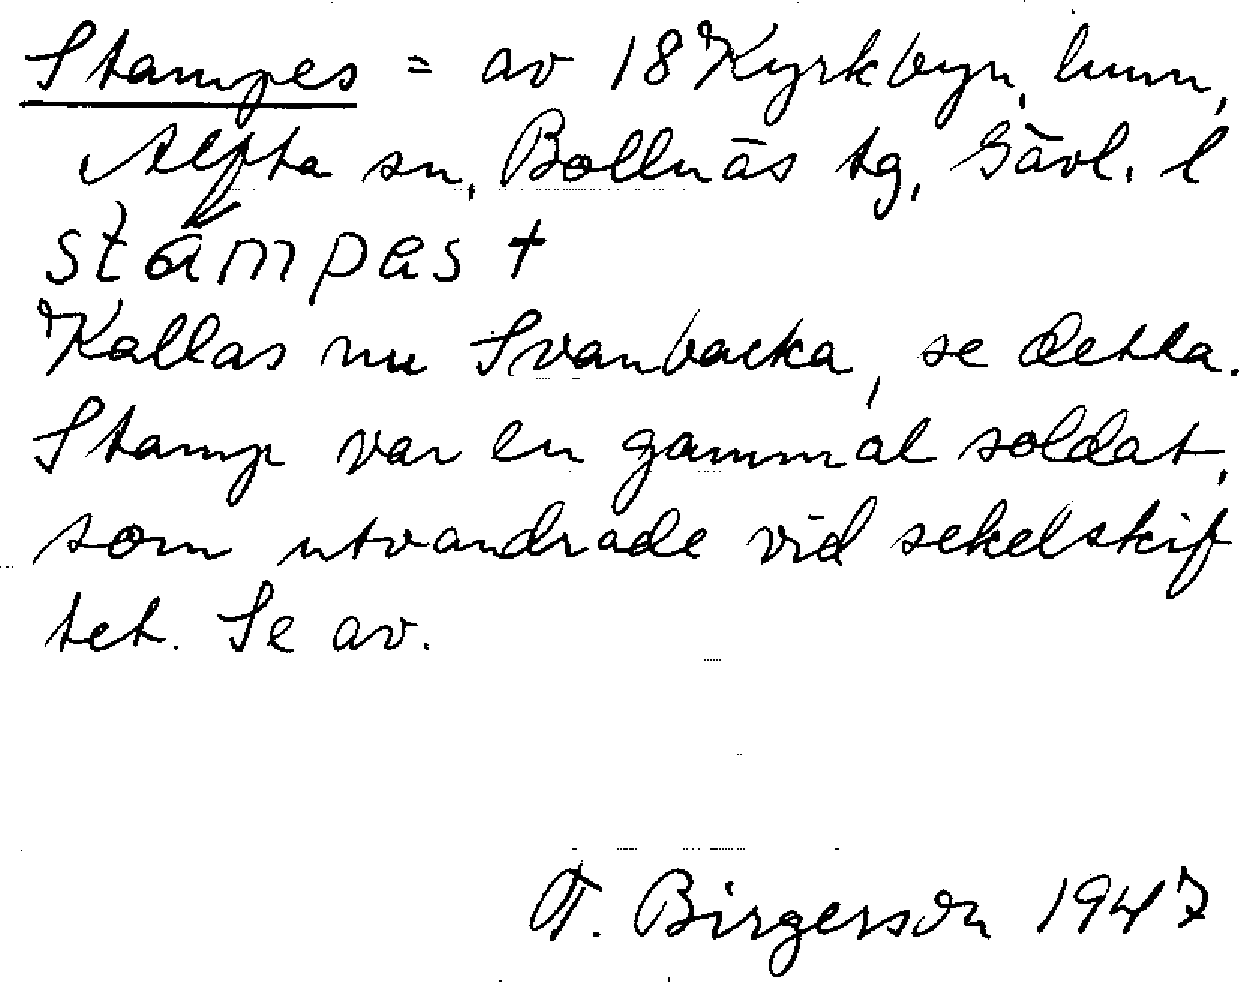 Stampes = av 18 Kyrkbyn, hmn,
Alfta sn, Bollnäs tg, Gävl. l
stàmpas +
Kallas nu Svanbacka, se detta.
Stamp var en gammal soldat,
som utvandrade vid sekelskif
tet. Se av.
T. Birgerson 1947